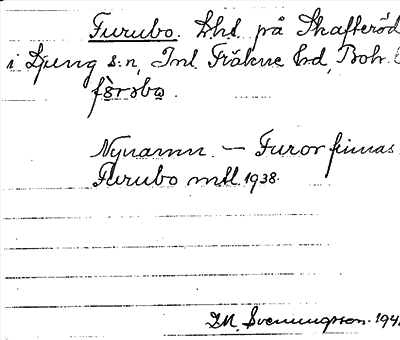 Furubo. Lht. på Skafteröd
i Ljung s:n, Inl. Fräkne hd, Boh. l
fòrɔbo.
Nynamn. — Furor finnas.
Furubo mtl. 1938.
D.M. Svenningsson. 194